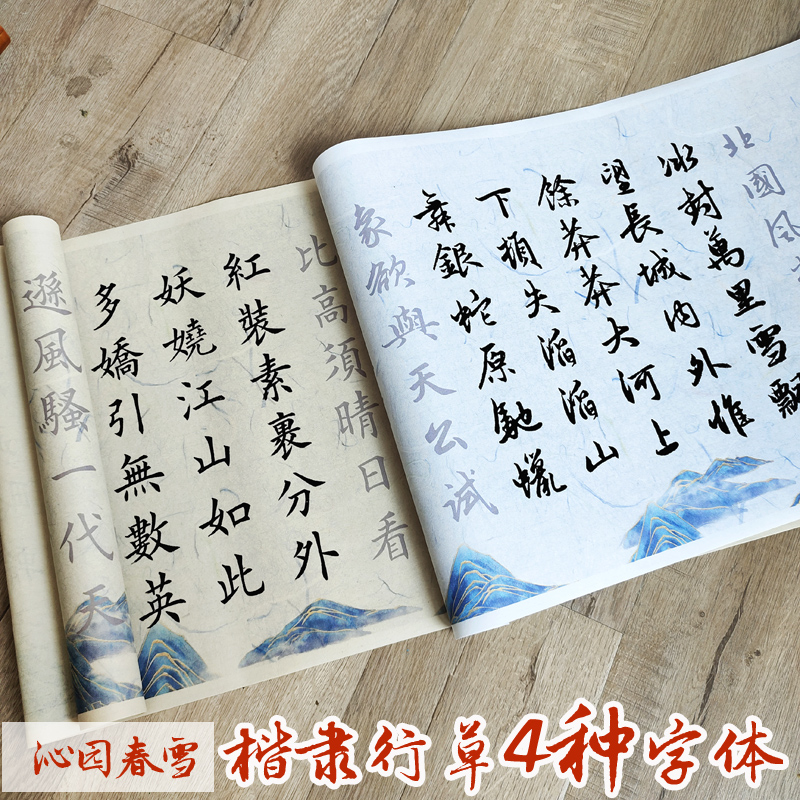 北國風
冰封萬里雪飄
望長城內外惟
餘莽莽大河上
下頓失滔滔山
舞銀蛇原馳蠟
象欲與天公試
比高須晴日看
紅裝素裹分外
妖嬈江山如此
多嬌引無數英
遜風騷一代天
沁园春雪
楷隶行草4种字体